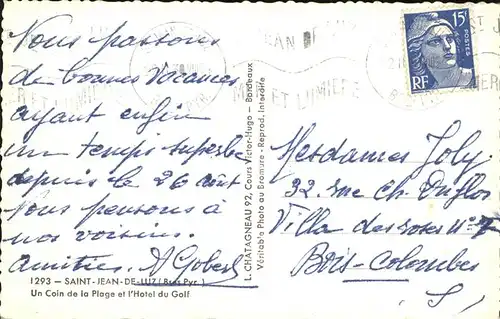 Nous passons
de bonnes vacances
ayant enfin
un temps superbe
depuis le 26 août
Nous pensons à
nos voisins.
Amitiés. A Gobert
1293 - SAINT-JEAN-DE-LUZ (Bses Pyr.)
Un Coin de la Plage et l'Hotel du Golf
L. CHATAGNEAU 92, Cours Victor-Hugo - Bordeaux
Véritable Photo au Bromure - Reprod. Interdite
JEAN
ET LUMIERE
15F
POSTES
RF
Mesdames Joly
32, rue Ch. Duflos
Villa des roses n° 7
Bois-Colombes
(S)